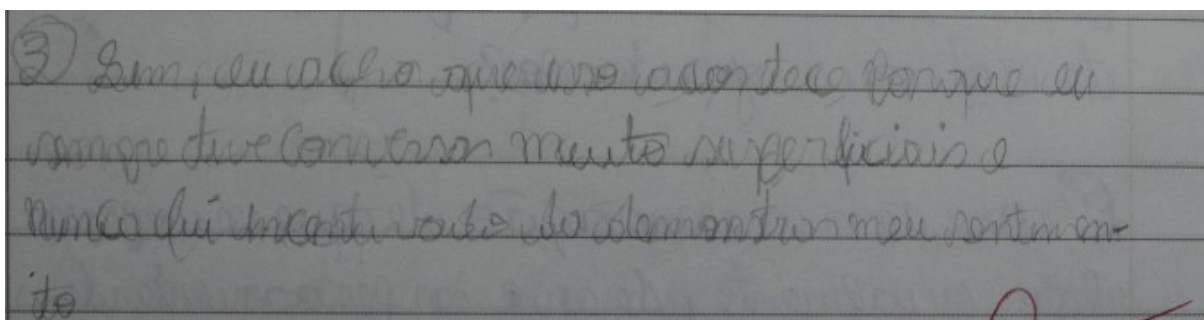 ③ Sim, eu acho que isso acontece porque eu
sempre tive conversas muito superficiais e
nunca fui incentivado do demonstrar meu sentimen-
to